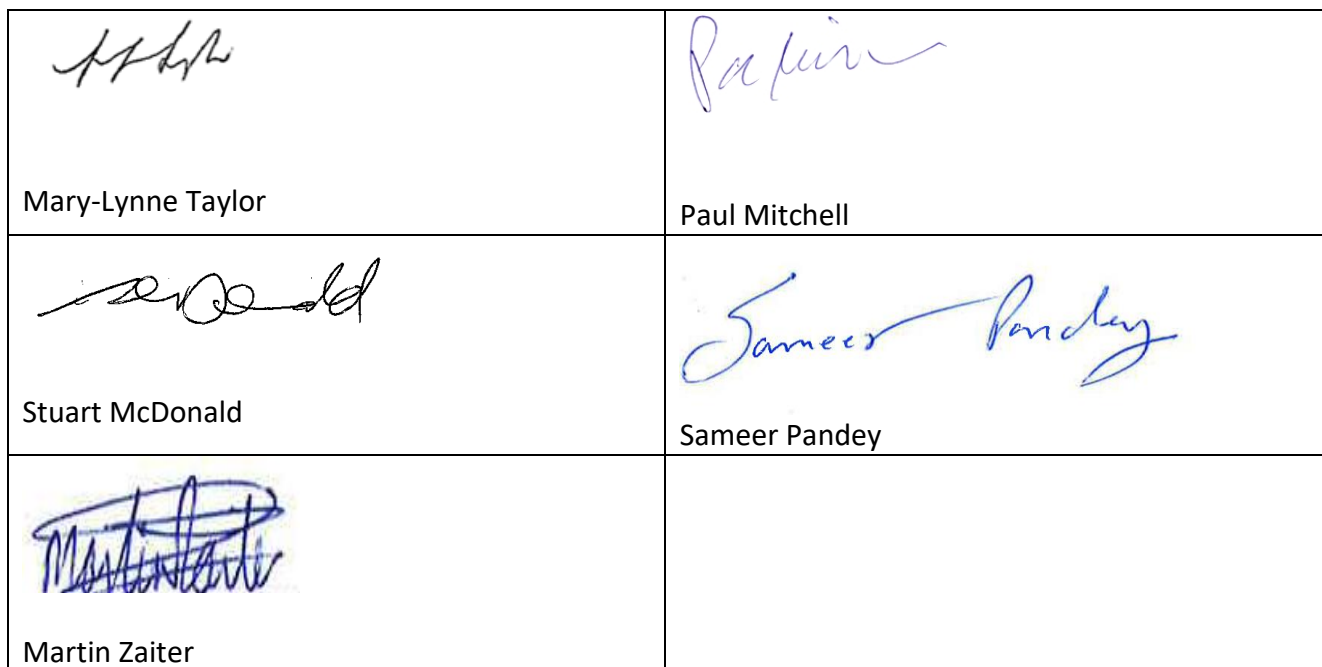 Mary-Lynne Taylor
Paul Mitchell
Stuart McDonald
Sameer Pandey
Sameer Pandey
Martin Zaiter